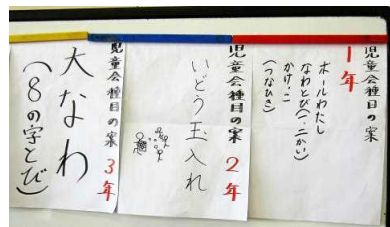 児童会種目の案
1年
ボールわたし
なわとび(一、二かい)
かけっこ
(つなひき)
児童会種目の案
2年
いどう玉入れ
児童会種目の案
3年
大なわ
(8の字とび)